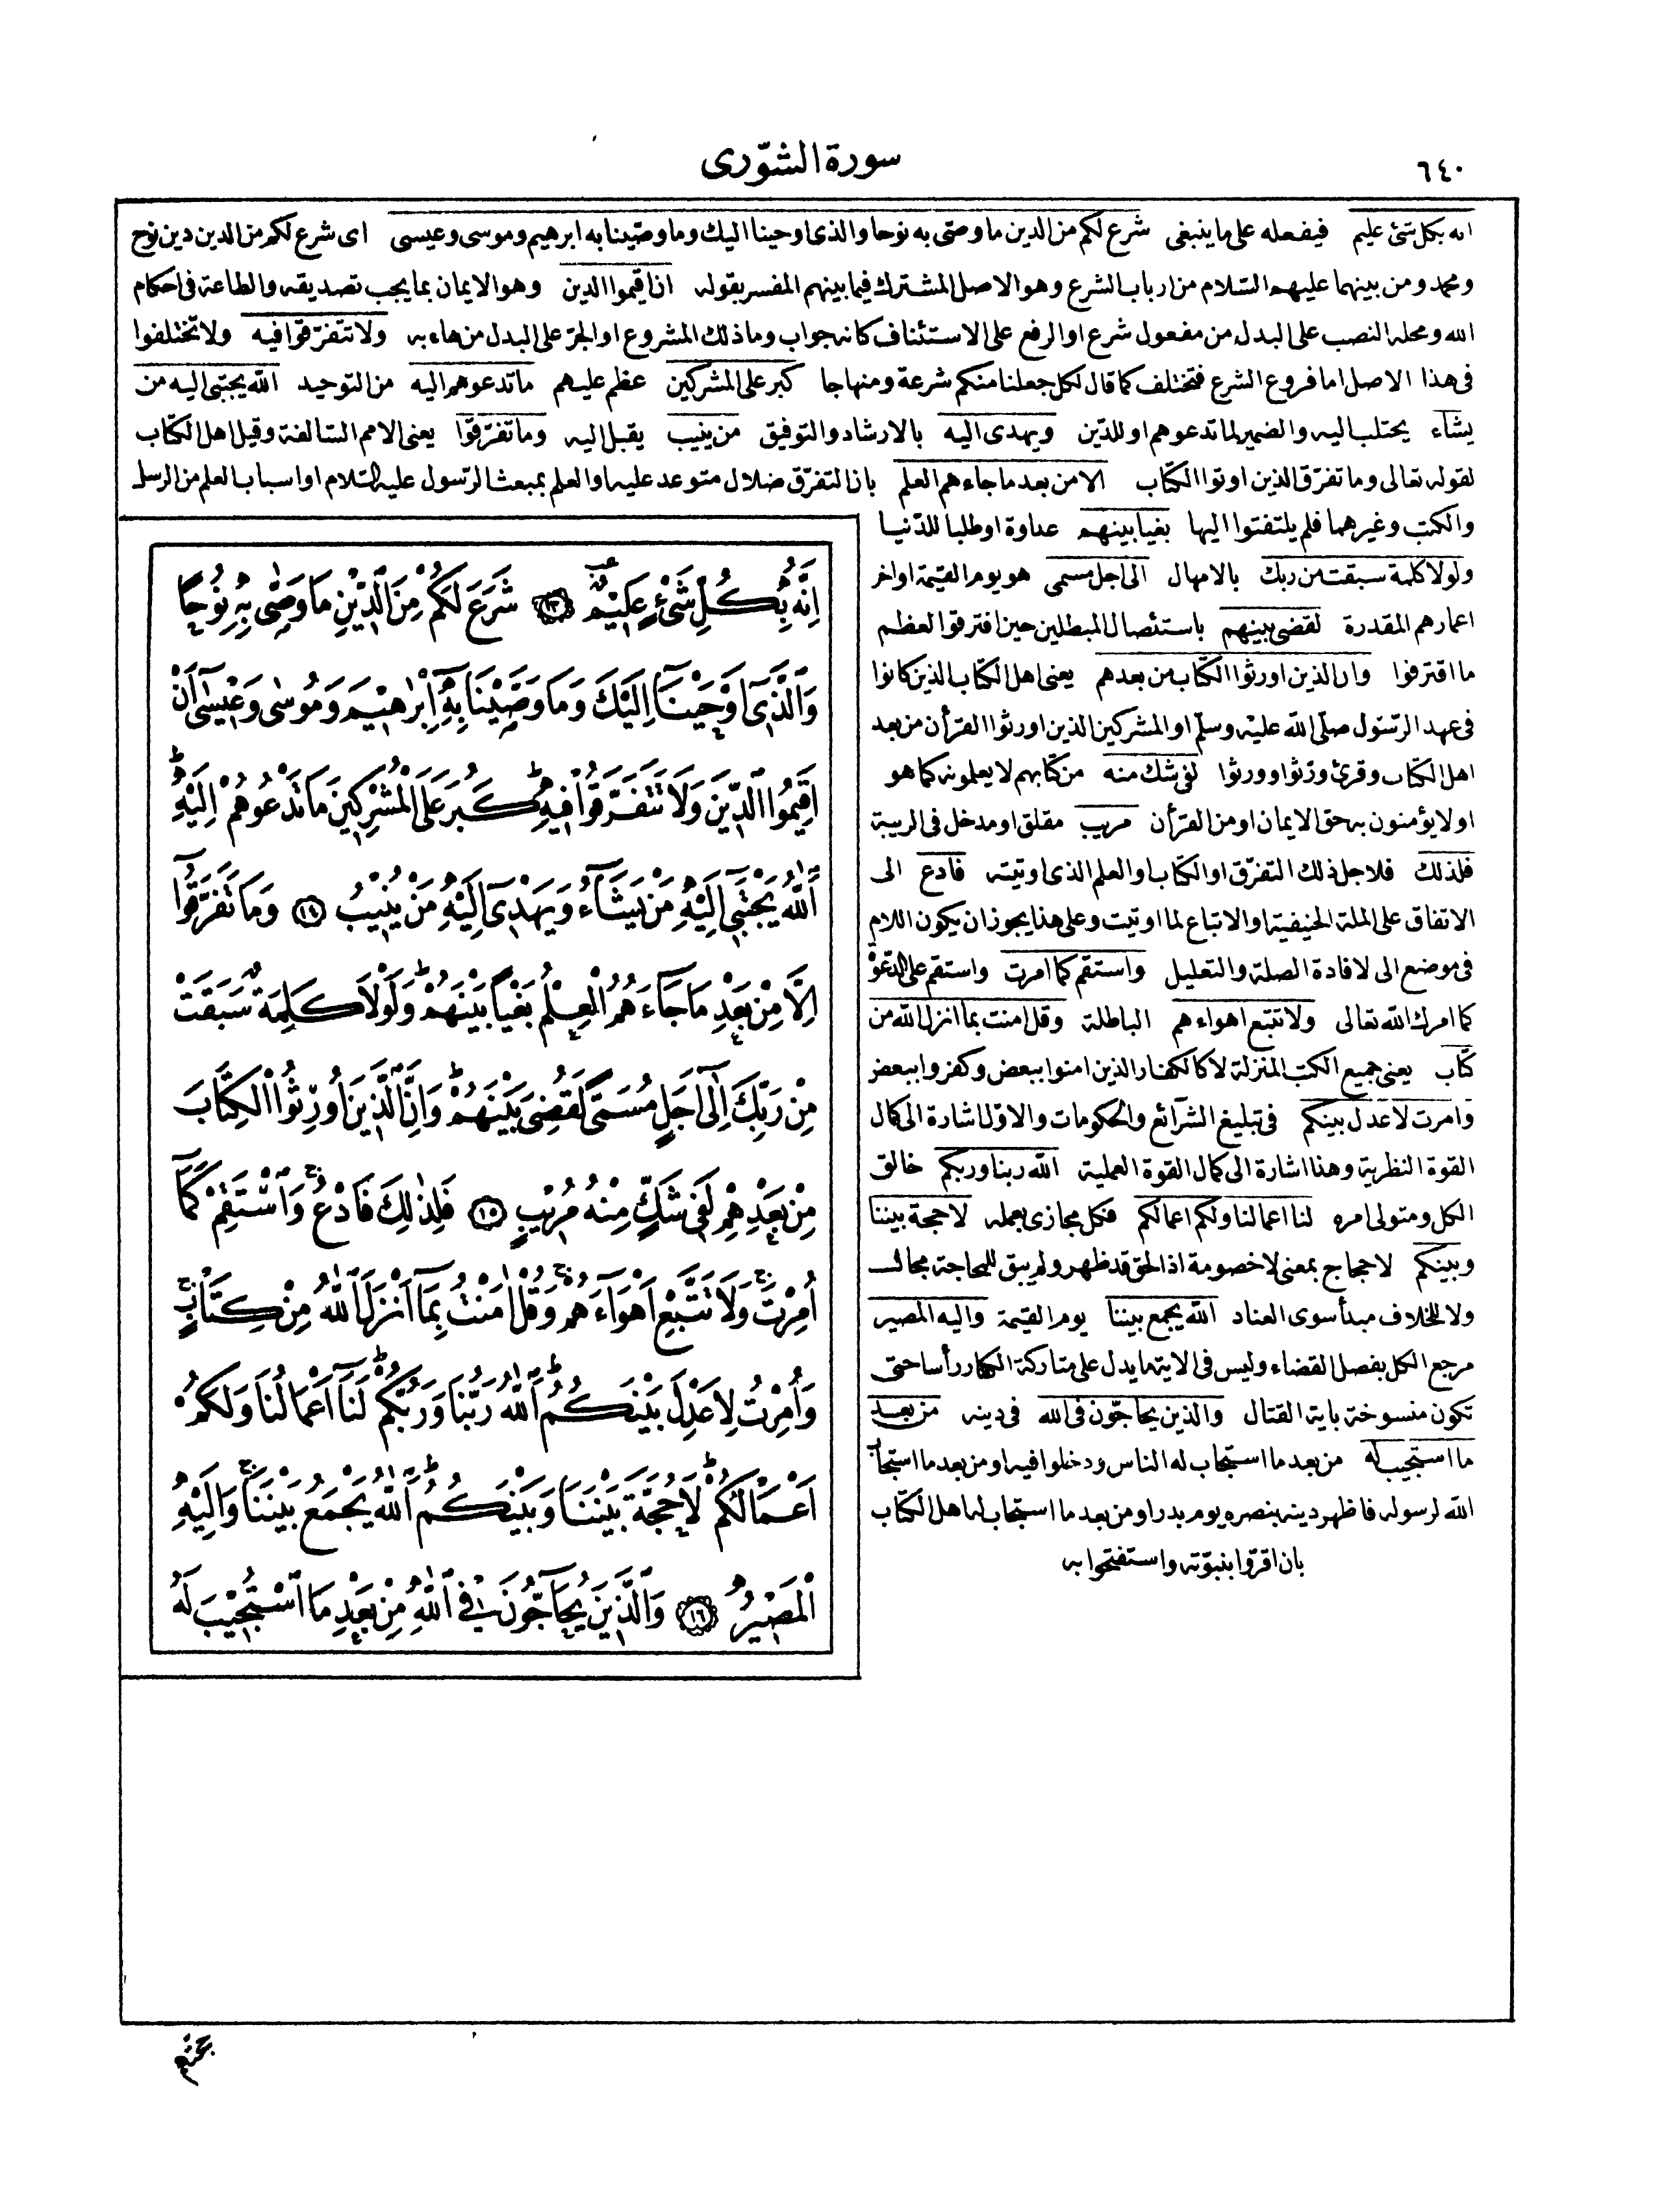 ٦٤٠
سورة الشّورى
انه بكل شئ عليم فيفعله على ما ينبغى شرع لكم من الدين ما وصّى به نوحا والذى اوحينا اليك وما وصّينا به ابرهيم وموسى وعيسى اى شرع لكم من الدين دين نوح
ومحمد ومن بينهما عليهم السّلام من ارباب الشرع وهو الاصل المشترك فيما بينهم المفسر بقوله ان اقيموا الدين وهو الايمان بما يجب تصديقه والطاعة فى احكام
الله ومحله النصب على البدل من مفعول شرع او الرفع على الاستئناف كانه جواب وما ذلك المشروع او الجرّ على البدل من هاء به ولا تتفرّقوا فيه ولا تختلفوا
فى هذا الاصل اما فروع الشرع فتختلف كما قال لكل جعلنا منكم شرعة ومنهاجا كبر على المشركين عظم عليهم ما تدعوهم اليه من التوحيد الله يجتبى اليه من
يشاء يجتلب اليه والضمير لما تدعوهم او للدّين ويهدى اليه بالارشاد والتوفيق من ينيب يقبل اليه وما تفرّقوا يعنى الامم السّالفة وقيل اهل الكتاب
لقوله تعالى وما تفرّق الذين اوتوا الكتاب الا من بعد ما جاءهم العلم بان التفرّق ضلال متوعد عليه او العلم بمبعث الرّسول عليه السّلام او اسباب العلم من الرسل
والكتب وغيرهما فلم يلتفتوا اليها بغيا بينهم عداوة او طلبا للدّنيا
ولولا كلمة سبقت من ربك بالامهال الى اجل مسمى هو يوم القيمة او اخر
اعمارهم المقدرة لقضى بينهم باستئصال المبطلين حين افترقوا لعظم
ما اقترفوا وان الذين اورثوا الكتاب من بعدهم يعنى اهل الكتاب الذين كانوا
فى عهد الرّسول صلّى الله عليه وسلّم او المشركين الذين اورثوا القرأن من بعد
اهل الكتاب وقرئ ورّثوا وورثوا لفى شك منه من كتابهم لا يعلمونه كما هو
او لا يؤمنون به حق الايمان او من القرأن مريب مقلق او مدخل فى الريبة
فلذلك فلاجل ذلك التفرّق او الكتاب والعلم الذى اوتيته فادع الى
الاتفاق على الملة الحنيفية او الاتباع لما اوتيت وعلى هذا يجوز ان يكون اللام
فى موضع الى لافادة الصلة والتعليل واستقم كما امرت واستقم على الدّعوة
كما امرك الله تعالى ولا تتبع اهواءهم الباطلة وقل امنت بما انزل الله من
كتاب يعنى جميع الكتب المنزلة لا كالكفار الذين امنوا ببعض وكفروا ببعض
وامرت لاعدل بينكم فى تبليغ الشرآئع والحكومات والاوّل اشارة الى كمال
القوة النظرية وهذا اشارة الى كمال القوة العملية الله ربنا وربكم خالق
الكل ومتولى امره لنا اعمالنا ولكم اعمالكم فكل مجازى بعمله لا حجة بيننا
وبينكم لا حجاج بمعنى لا خصومة اذ الحق قد ظهر ولم يبق للمحاجة مجال
ولا للخلاف مبدأ سوى العناد الله يجمع بيننا يوم القيمة واليه المصير
مرجع الكل بفصل القضاء وليس فى الاية ما يدل على متاركة الكفار رأسا حتى
تكون منسوخة باية القتال والذين يحاجّون فى الله فى دينه من بعد
ما استجيب له من بعد ما استجاب له الناس ودخلوا فيه او من بعد ما استجاب
الله لرسوله فاظهر دينه بنصره يوم بدر او من بعد ما استجاب له اهل الكتاب
بان اقرّوا بنبوّته واستفتحوا به
اِنَّهُ بِكُلِّ شَىْءٍ عَلِيْمٌ ﴿١٣﴾ شَرَعَ لَكُمْ مِنَ الدِّيْنِ مَا وَصّٰى بِهِ نُوْحًا
وَالَّذٓى اَوْحَيْنَٓا اِلَيْكَ وَمَا وَصَّيْنَا بِهٖٓ اِبْرٰهِيْمَ وَمُوسٰى وَعِيْسٰٓى اَنْ
اَقِيمُوا الدِّيْنَ وَلَا تَتَفَرَّقُوا فِيهِ كَبُرَ عَلَى الْمُشْرِكِينَ مَا تَدْعُوهُمْ اِلَيْهِ
اَللّٰهُ يَجْتَبٓى اِلَيْهِ مَنْ يَشَٓاءُ وَيَهْدٓى اِلَيْهِ مَنْ يُنِيْبُ ﴿١٤﴾ وَمَا تَفَرَّقُٓوا
اِلَّا مِنْ بَعْدِ مَا جَٓاءَهُمُ الْعِلْمُ بَغْيًا بَيْنَهُمْ وَلَوْلَا كَلِمَةٌ سَبَقَتْ
مِنْ رَبِّكَ اِلٰٓى اَجَلٍ مُسَمًّى لَقُضِىَ بَيْنَهُمْ وَاِنَّ الَّذِيْنَ اُورِثُوا الْكِتَابَ
مِنْ بَعْدِهِمْ لَفِى شَكٍّ مِنْهُ مُرِيْبٍ ﴿١٥﴾ فَلِذٰلِكَ فَادْعُ وَاسْتَقِمْ كَمَٓا
اُمِرْتَ وَلَا تَتَّبِعْ اَهْوَٓاءَهُمْ وَقُلْ اٰمَنْتُ بِمَٓا اَنْزَلَ اللّٰهُ مِنْ كِتَابٍ
وَاُمِرْتُ لِاَعْدِلَ بَيْنَكُمُ اَللّٰهُ رَبُّنَا وَرَبُّكُمْ لَنَٓا اَعْمَالُنَا وَلَكُمْ
اَعْمَالُكُمْ لَا حُجَّةَ بَيْنَنَا وَبَيْنَكُمُ اَللّٰهُ يَجْمَعُ بَيْنَنَا وَاِلَيْهِ
الْمَصِيْرُ ﴿١٦﴾ وَالَّذِينَ يُحَٓاجُّونَ فِى اللّٰهِ مِنْ بَعْدِ مَا اسْتُجِيْبَ لَهُ